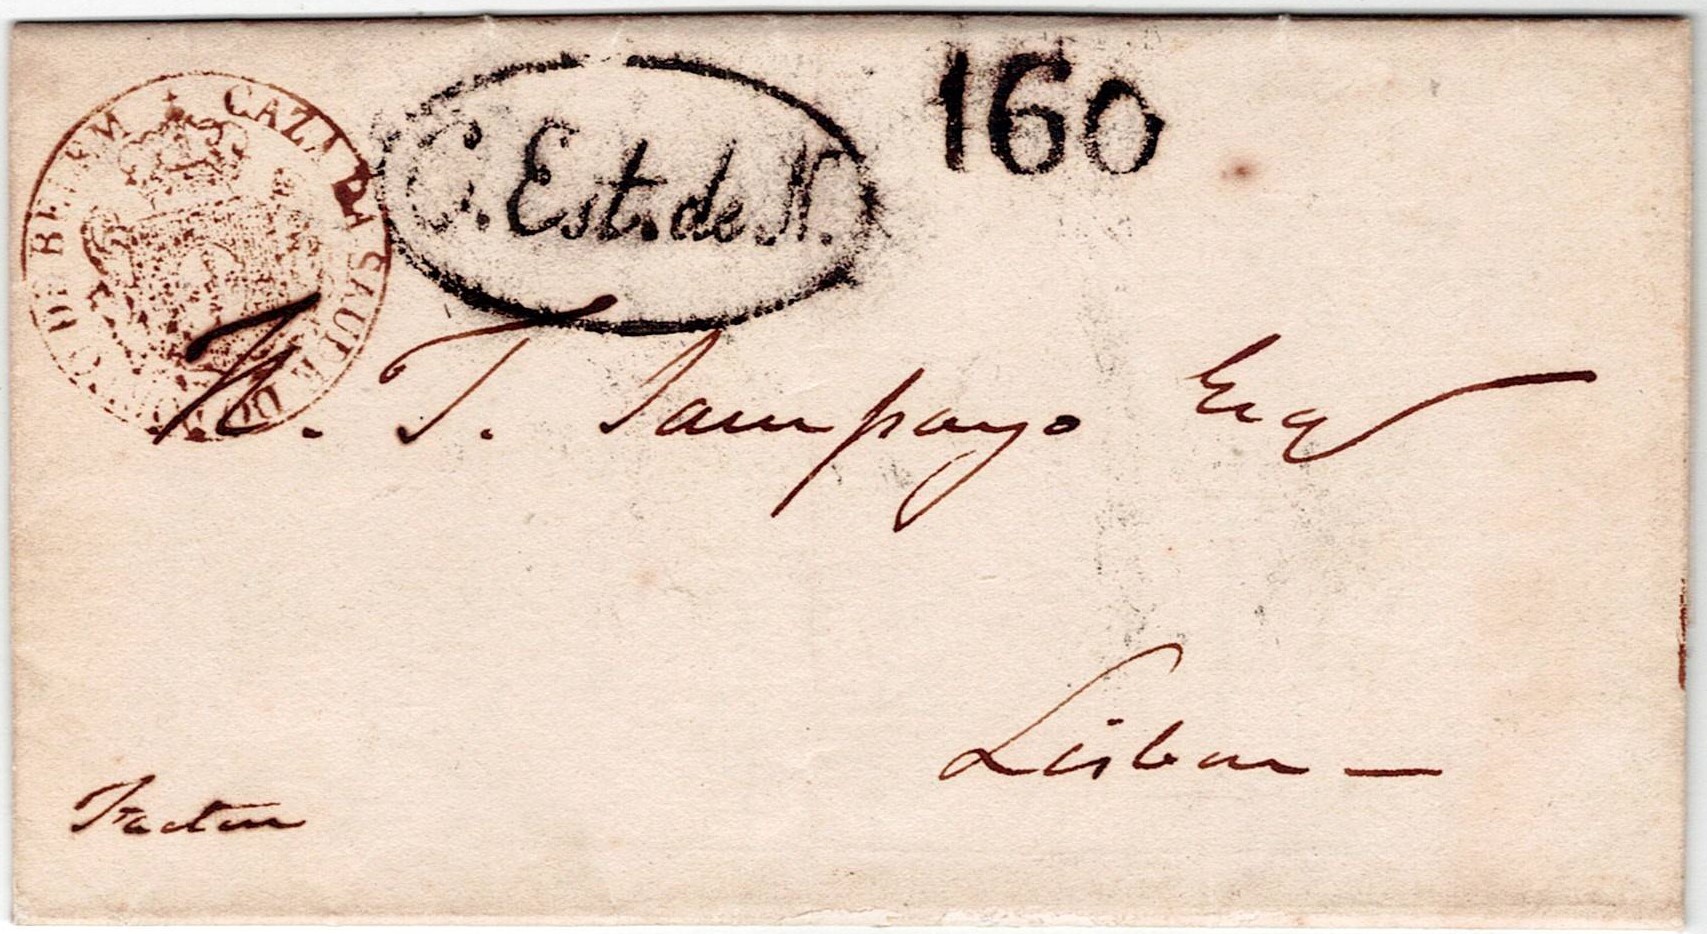 CAZA DA SAUDE DO PORTO DE BELEM
C. Est. de N.
160
T. Sampayo Esq
Lisbon —